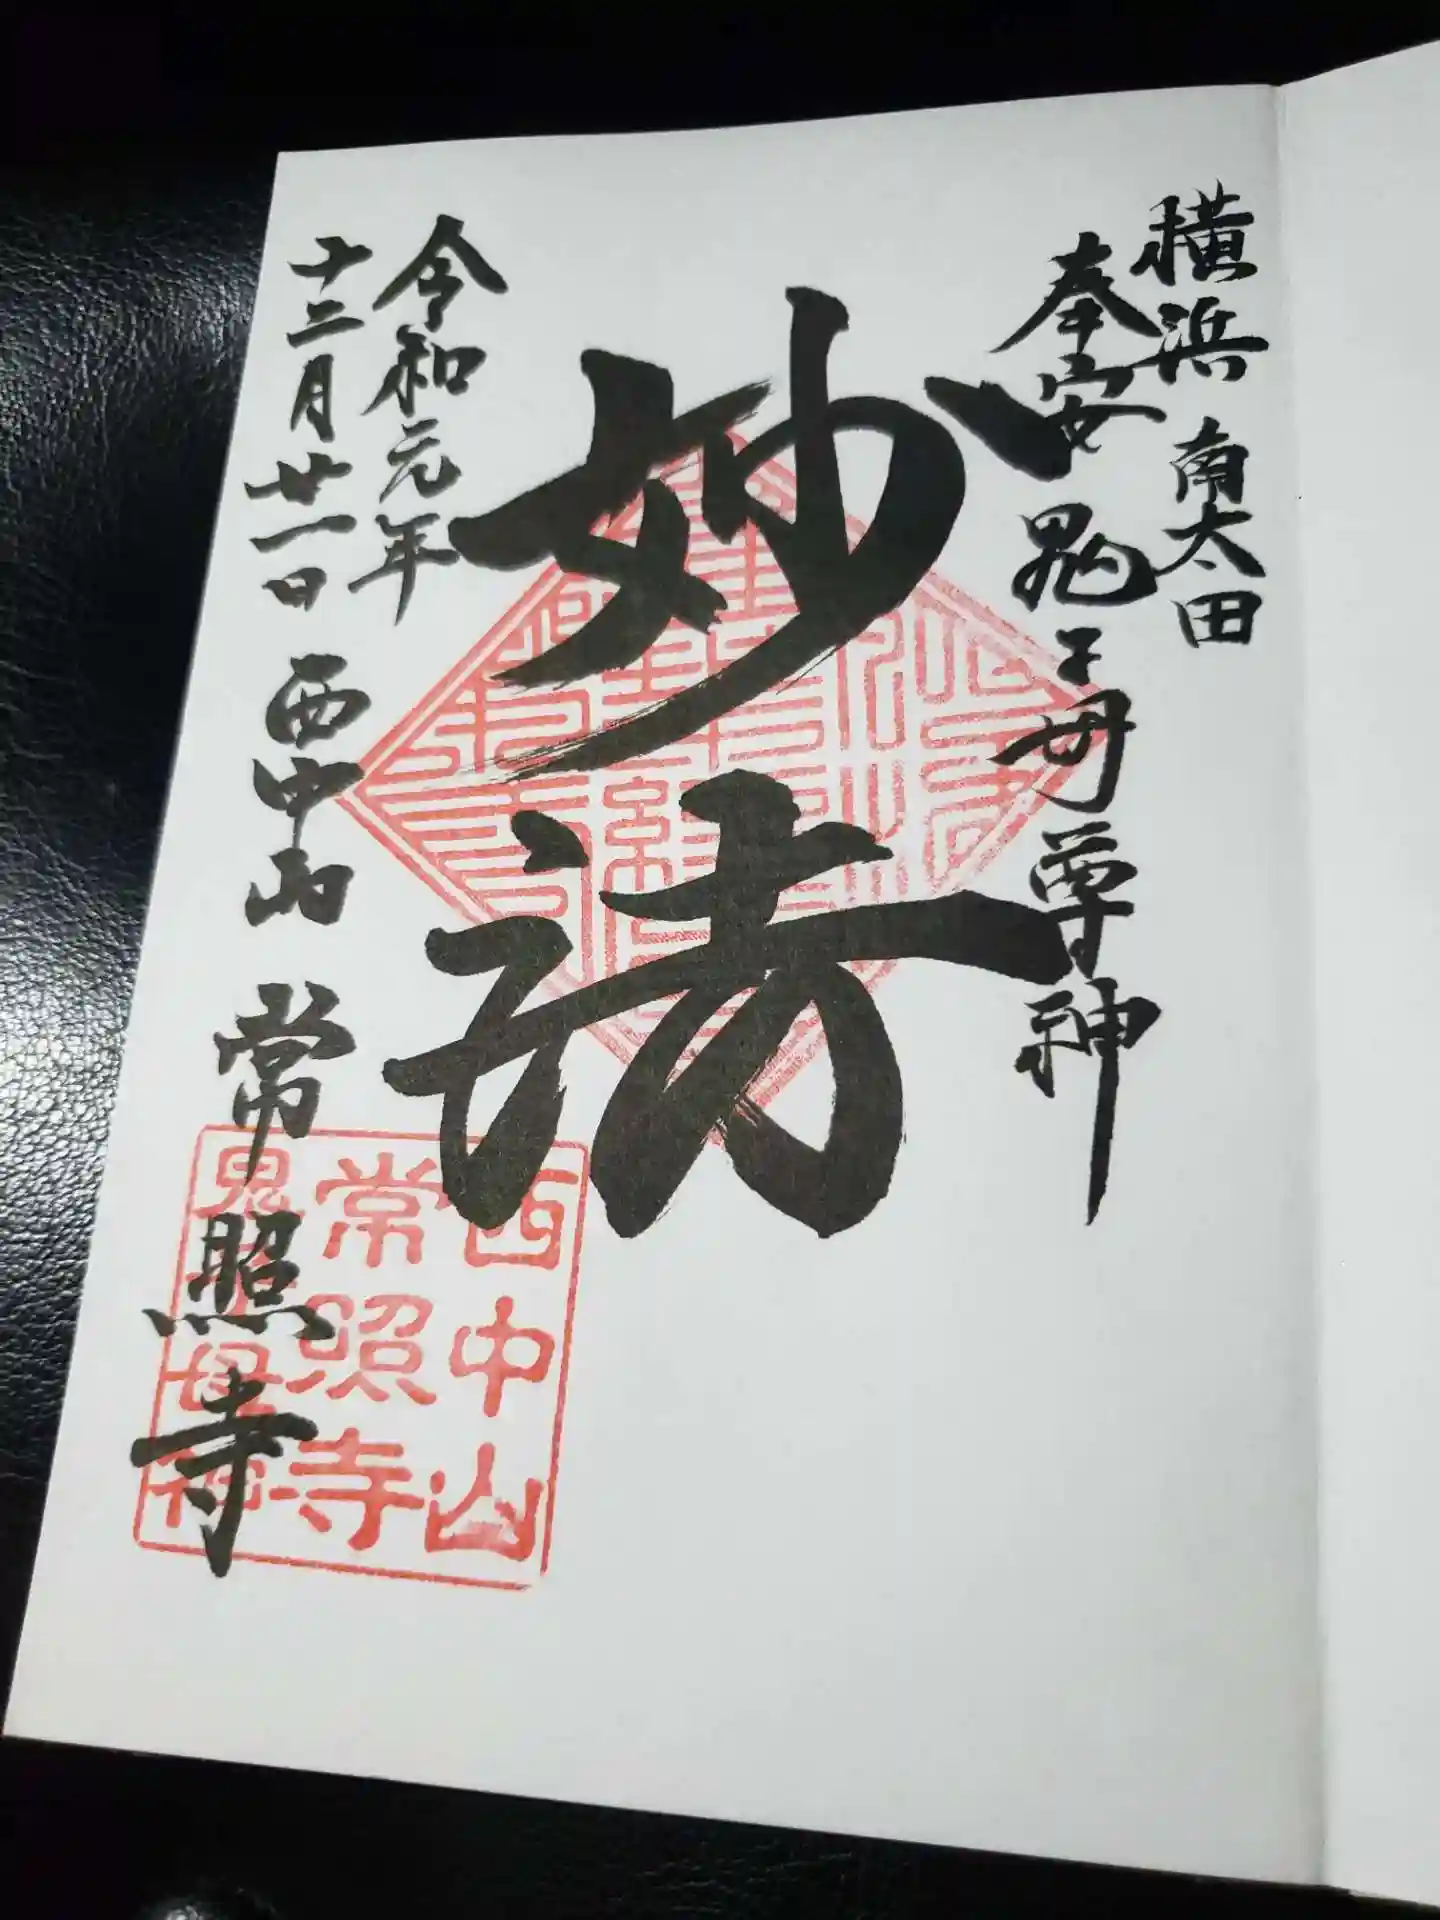 横浜 南太田
奉安鬼子母尊神
妙法
令和元年
十二月廿一日 西中山 常照寺
西中山
常照寺
鬼子母神